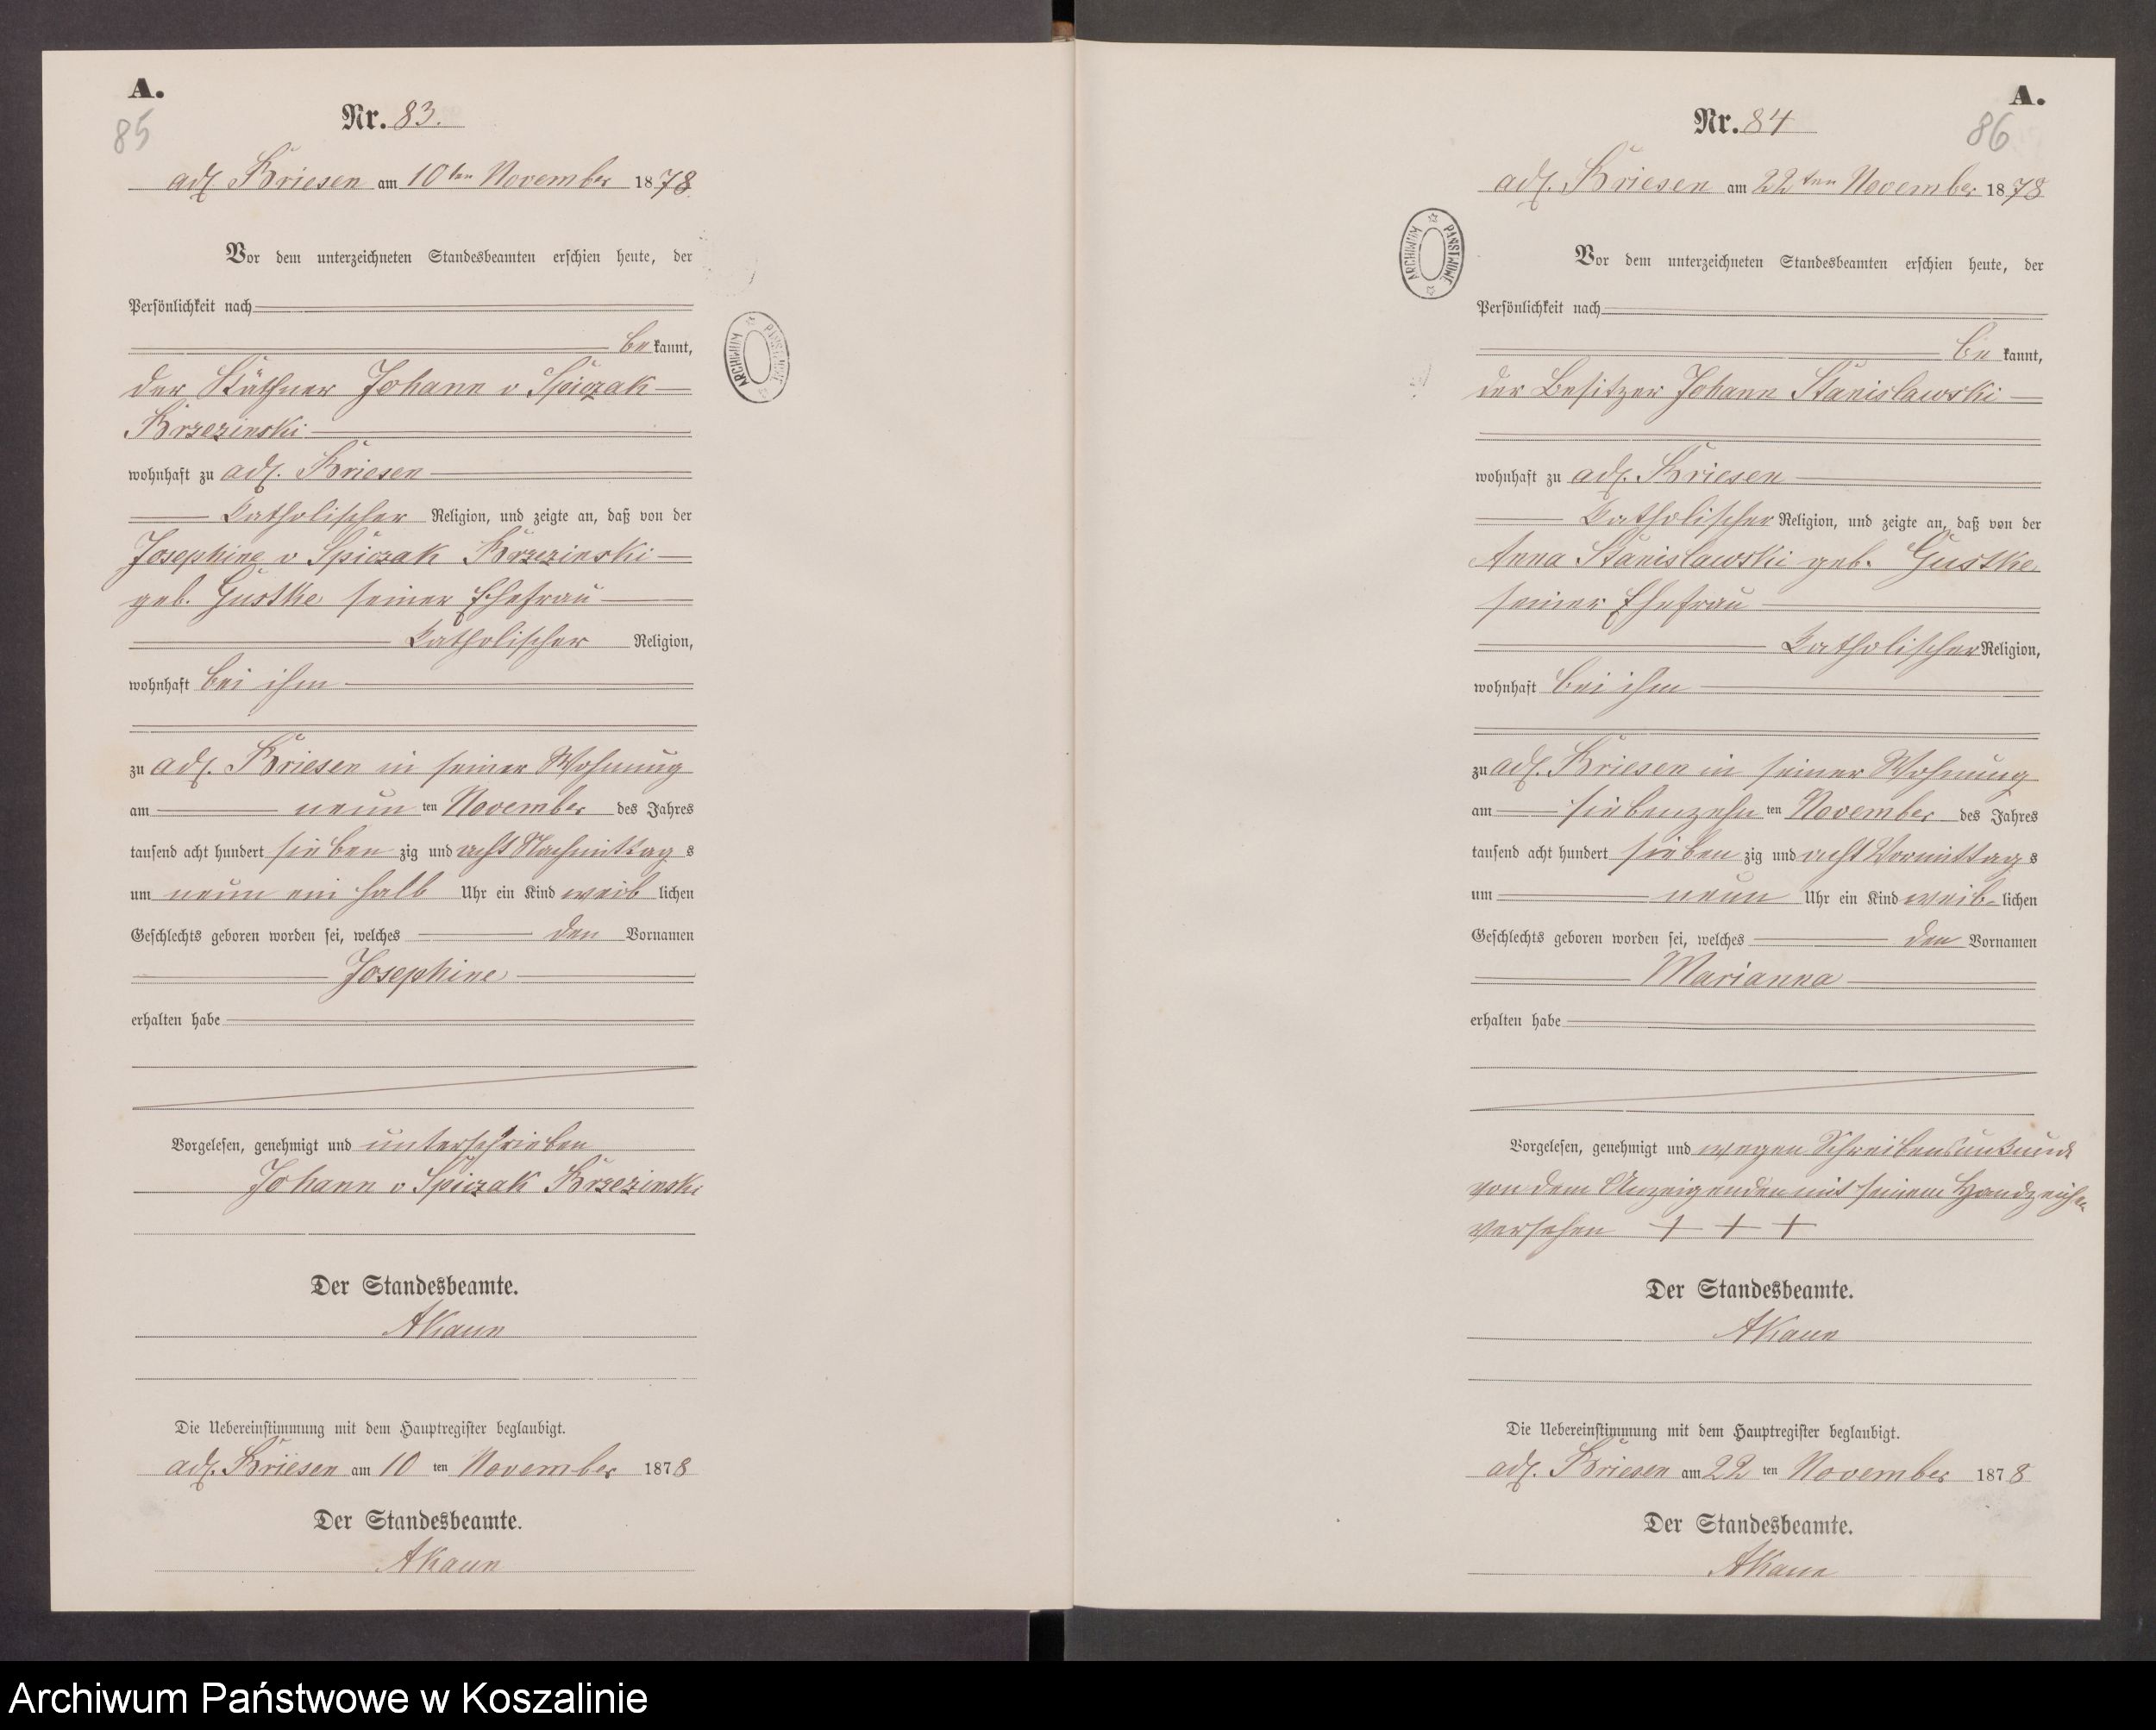 A.
85
Nr. 83.
adl. Briesen am 10ten November 1878
Vor dem unterzeichneten Standesbeamten erschien heute, der
Persönlichkeit nach
bekannt,
der Käthner Johann v Spiczak
Brzezinski
wohnhaft zu adl. Briesen
Katholischer Religion, und zeigte an, daß von der
Josephine v Spiczak Brzezinski
geb. Gustke seiner Ehefrau
Katholischer Religion,
wohnhaft bei ihm
zu adl. Briesen in seiner Wohnung
am neunten November des Jahres
tausend acht hundert siebenzig und acht Nachmittags
um neun ein halb Uhr ein Kind weiblichen
Geschlechts geboren worden sei, welches den Vornamen
Josephine
erhalten habe
Vorgelesen, genehmigt und unterschrieben
Johann v Spiczak Brzezinski
Der Standesbeamte.
AKaun
Die Uebereinstimmung mit dem Hauptregister beglaubigt.
adl. Briesen am 10ten November 1878
Der Standesbeamte.
AKaun
ARCHIWUM PAŃSTWOWE
A.
86
Nr. 84
adl. Briesen am 22ten November 1878
Vor dem unterzeichneten Standesbeamten erschien heute, der
Persönlichkeit nach
bekannt,
der Besitzer Johann Stanislawski
wohnhaft zu adl. Briesen
Katholischer Religion, und zeigte an, daß von der
Anna Stanislawski geb. Gustke
seiner Ehefrau
Katholischer Religion,
wohnhaft bei ihm
zu adl. Briesen in seiner Wohnung
am siebenzehnten November des Jahres
tausend acht hundert siebenzig und acht Vormittags
um neun Uhr ein Kind weiblichen
Geschlechts geboren worden sei, welches den Vornamen
Marianna
erhalten habe
Vorgelesen, genehmigt und wegen Schreibensunkunde
von dem Anzeigenden mit seinem Handzeichen
versehen + + +
Der Standesbeamte.
AKaun
Die Uebereinstimmung mit dem Hauptregister beglaubigt.
adl. Briesen am 22ten November 1878
Der Standesbeamte.
AKaun
ARCHIWUM PAŃSTWOWE
Archiwum Państwowe w Koszalinie